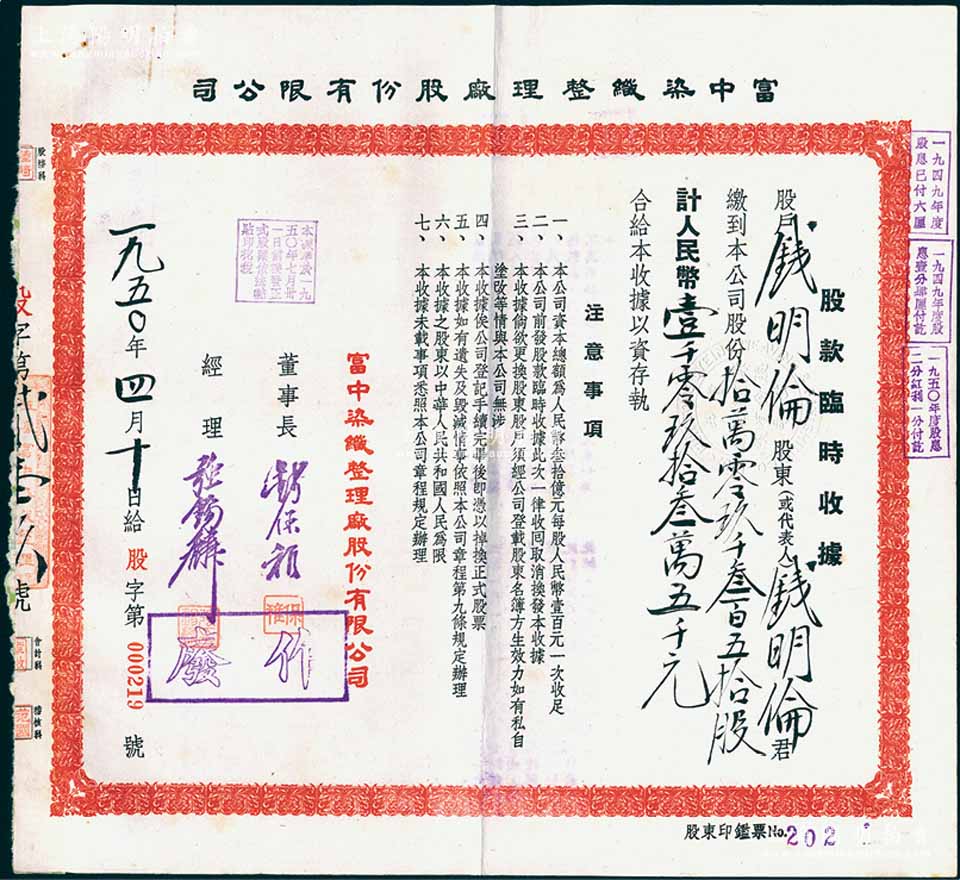 富中染織整理廠股份有限公司
股款臨時收據
股戶錢明倫 股東(或代表人)錢明倫君
繳到本公司股份拾萬零玖千叁百五拾股
計人民幣壹千零玖拾叁萬五千元
合給本收據以資存執
注意事項
一、本公司資本總額為人民幣叁拾億元每股人民幣壹百元一次收足
二、本公司前發股款臨時收據此次一律收囘取消換發本收據
三、本收據倘欲更換股東股戶須經公司登載股東名簿方生效力如有私自
塗改等情與本公司無涉
四、本收據俟公司登記手續完畢後即憑以掉換正式股票
五、本收據如有遺失及毀滅情事依照本公司章程第九條規定辦理
六、本收據之股東以中華人民共和國人民為限
七、本收據未載事項悉照本公司章程規定辦理
富中染織整理廠股份有限公司
董事長
經理
作
廢
一九五〇年四月十日給 股字第000219號
一九四九年度
股息已付六厘
一九四九年度股
一九五〇年度股息
二分紅利一分付訖
股東印鑑票No.202
股務科
會計科
稽核科